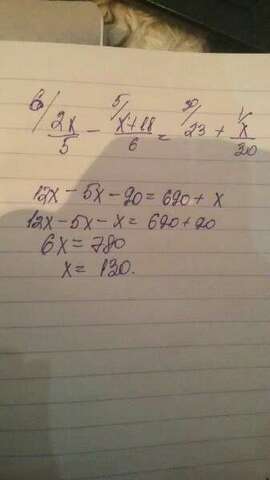 6/ 2x/5 - 5/ x+18/6 = 30/ 23 + 1/ x/30
12x - 5x - 90 = 690 + x
12x - 5x - x = 690 + 90
6x = 780
x = 130.